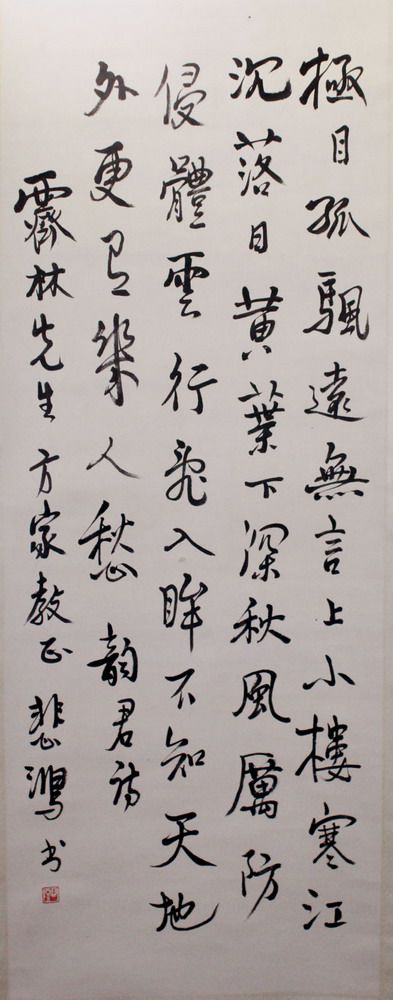 極目孤颿遠無言上小樓寒江
沉落日黃葉下深秋風厲防
侵體雲行飛入眸不知天地
外更有幾人愁 韻君詩
霽林先生方家教正 悲鴻書